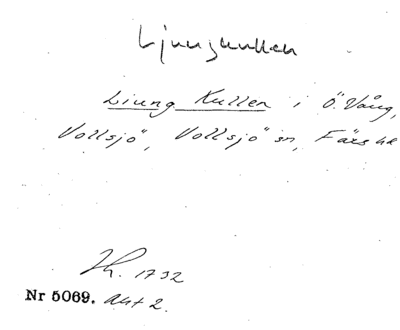 Ljungkullen
Liung Kullen i Ö. Vång,
Vollsjö, Vollsjö sn, Färs hd
Lk. 1732
Nr 5069. Akt 2.